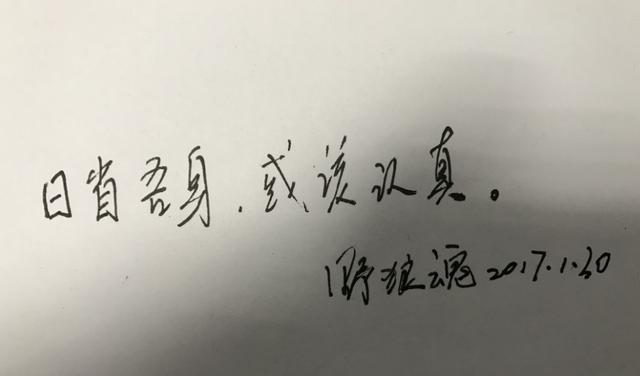 日省吾身.或该认真。
野狼魂2017.1.30